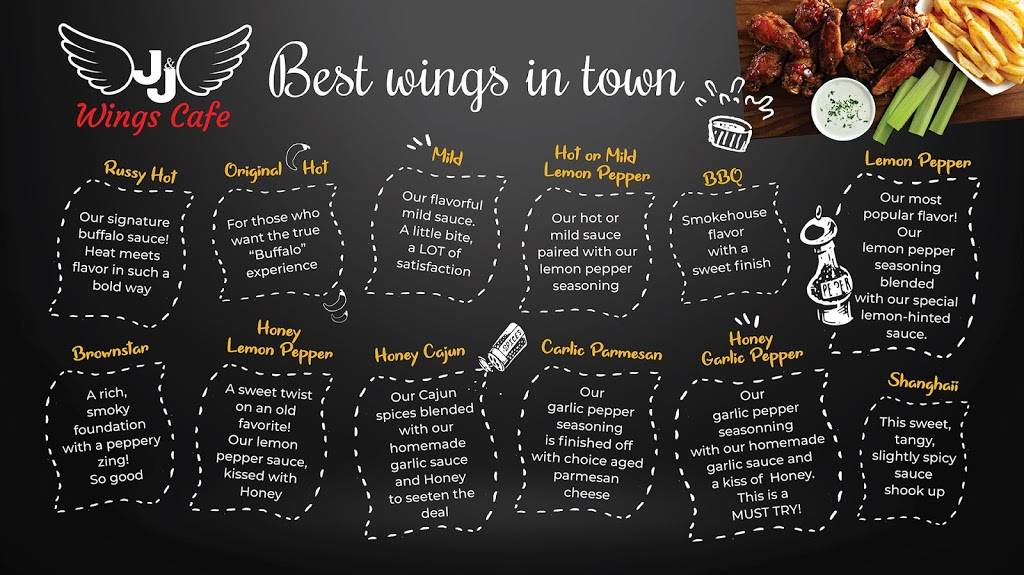 J&J
Wings Cafe
Best wings in town
Russy Hot
Our signature
buffalo sauce!
Heat meets
flavor in such a
bold way
Original Hot
For those who
want the true
"Buffalo"
experience
Mild
Our flavorful
mild sauce.
A little bite,
a LOT of
satisfaction
Hot or Mild
Lemon Pepper
Our hot or
mild sauce
paired with our
lemon pepper
seasoning
BBQ
Smokehouse
flavor
with a
sweet finish
Lemon Pepper
Our most
popular flavor!
Our
lemon pepper
seasoning
blended
with our special
lemon-hinted
sauce.
Brownstar
A rich,
smoky
foundation
with a peppery
zing!
So good
Honey
Lemon Pepper
A sweet twist
on an old
favorite!
Our lemon
pepper sauce,
kissed with
Honey
Honey Cajun
Our Cajun
spices blended
with our
homemade
garlic sauce
and Honey
to seeten the
deal
SPICES
Garlic Parmesan
Our
garlic pepper
seasoning
is finished off
with choice aged
parmesan
cheese
Honey
Garlic Pepper
Our
garlic pepper
seasonning
with our homemade
garlic sauce and
a kiss of Honey.
This is a
MUST TRY!
Shanghaii
This sweet,
tangy,
slightly spicy
sauce
shook up